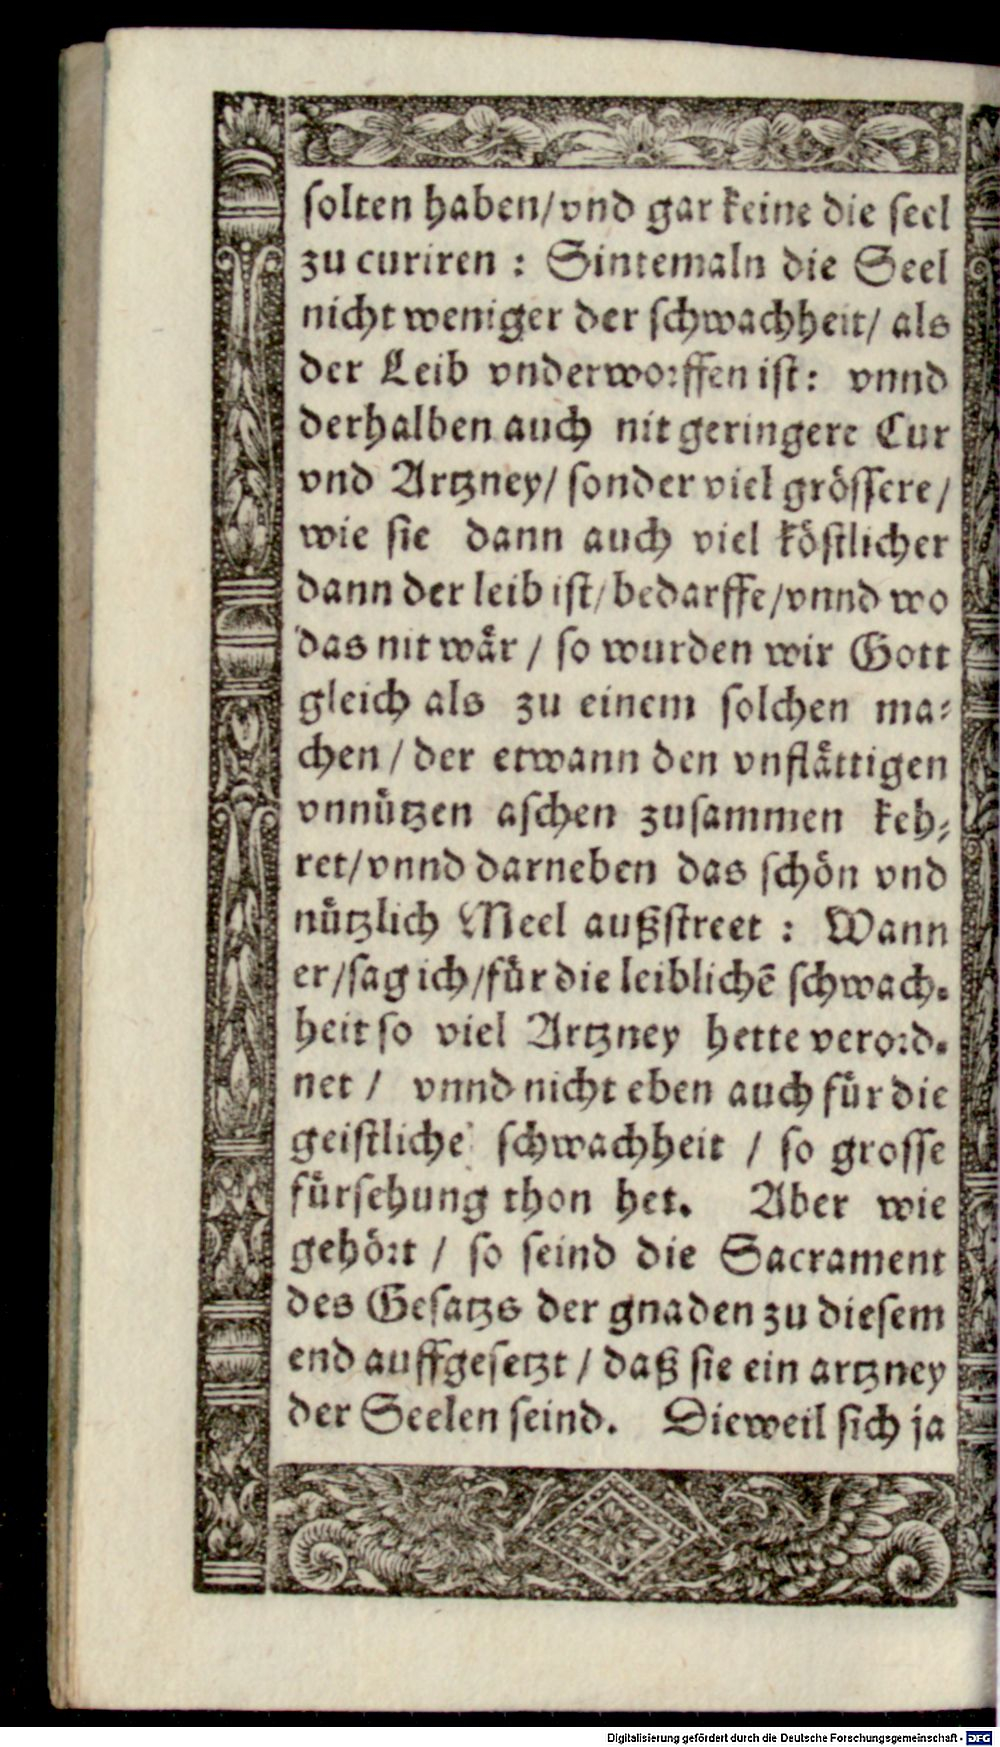 solten haben/vnd gar keine die seel
zu curiren : Sintemaln die Seel
nicht weniger der schwachheit/ als
der Leib vnderworffen ist: vnnd
derhalben auch nit geringere Cur
vnd Artzney/ sonder viel grössere/
wie sie dann auch viel köstlicher
dann der leib ist/ bedarffe/vnnd wo
das nit wär / so wurden wir Gott
gleich als zu einem solchen ma⸗
chen / der etwann den vnflättigen
vnnützen aschen zusammen keh⸗
ret/vnnd darneben das schön vnd
nützlich Meel außstreet : Wann
er/sag ich/für die leiblichẽ schwach⸗
heit so viel Artzney hette verord⸗
net / vnnd nicht eben auch für die
geistliche schwachheit / so grosse
fürsehung thon het. Aber wie
gehört / so seind die Sacrament
des Gesatzs der gnaden zu diesem
end auffgesetzt / daß sie ein artzney
der Seelen seind. Dieweil sich ja
Digitalisierung gefördert durch die Deutsche Forschungsgemeinschaft - DFG